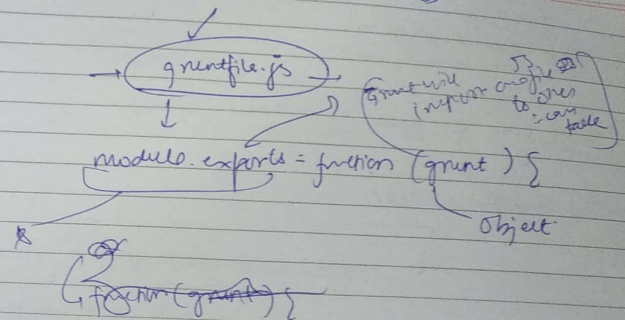 gruntfile.js
Grunt will
import
to
module.exports = function (grunt) {
Object
function (grunt) {